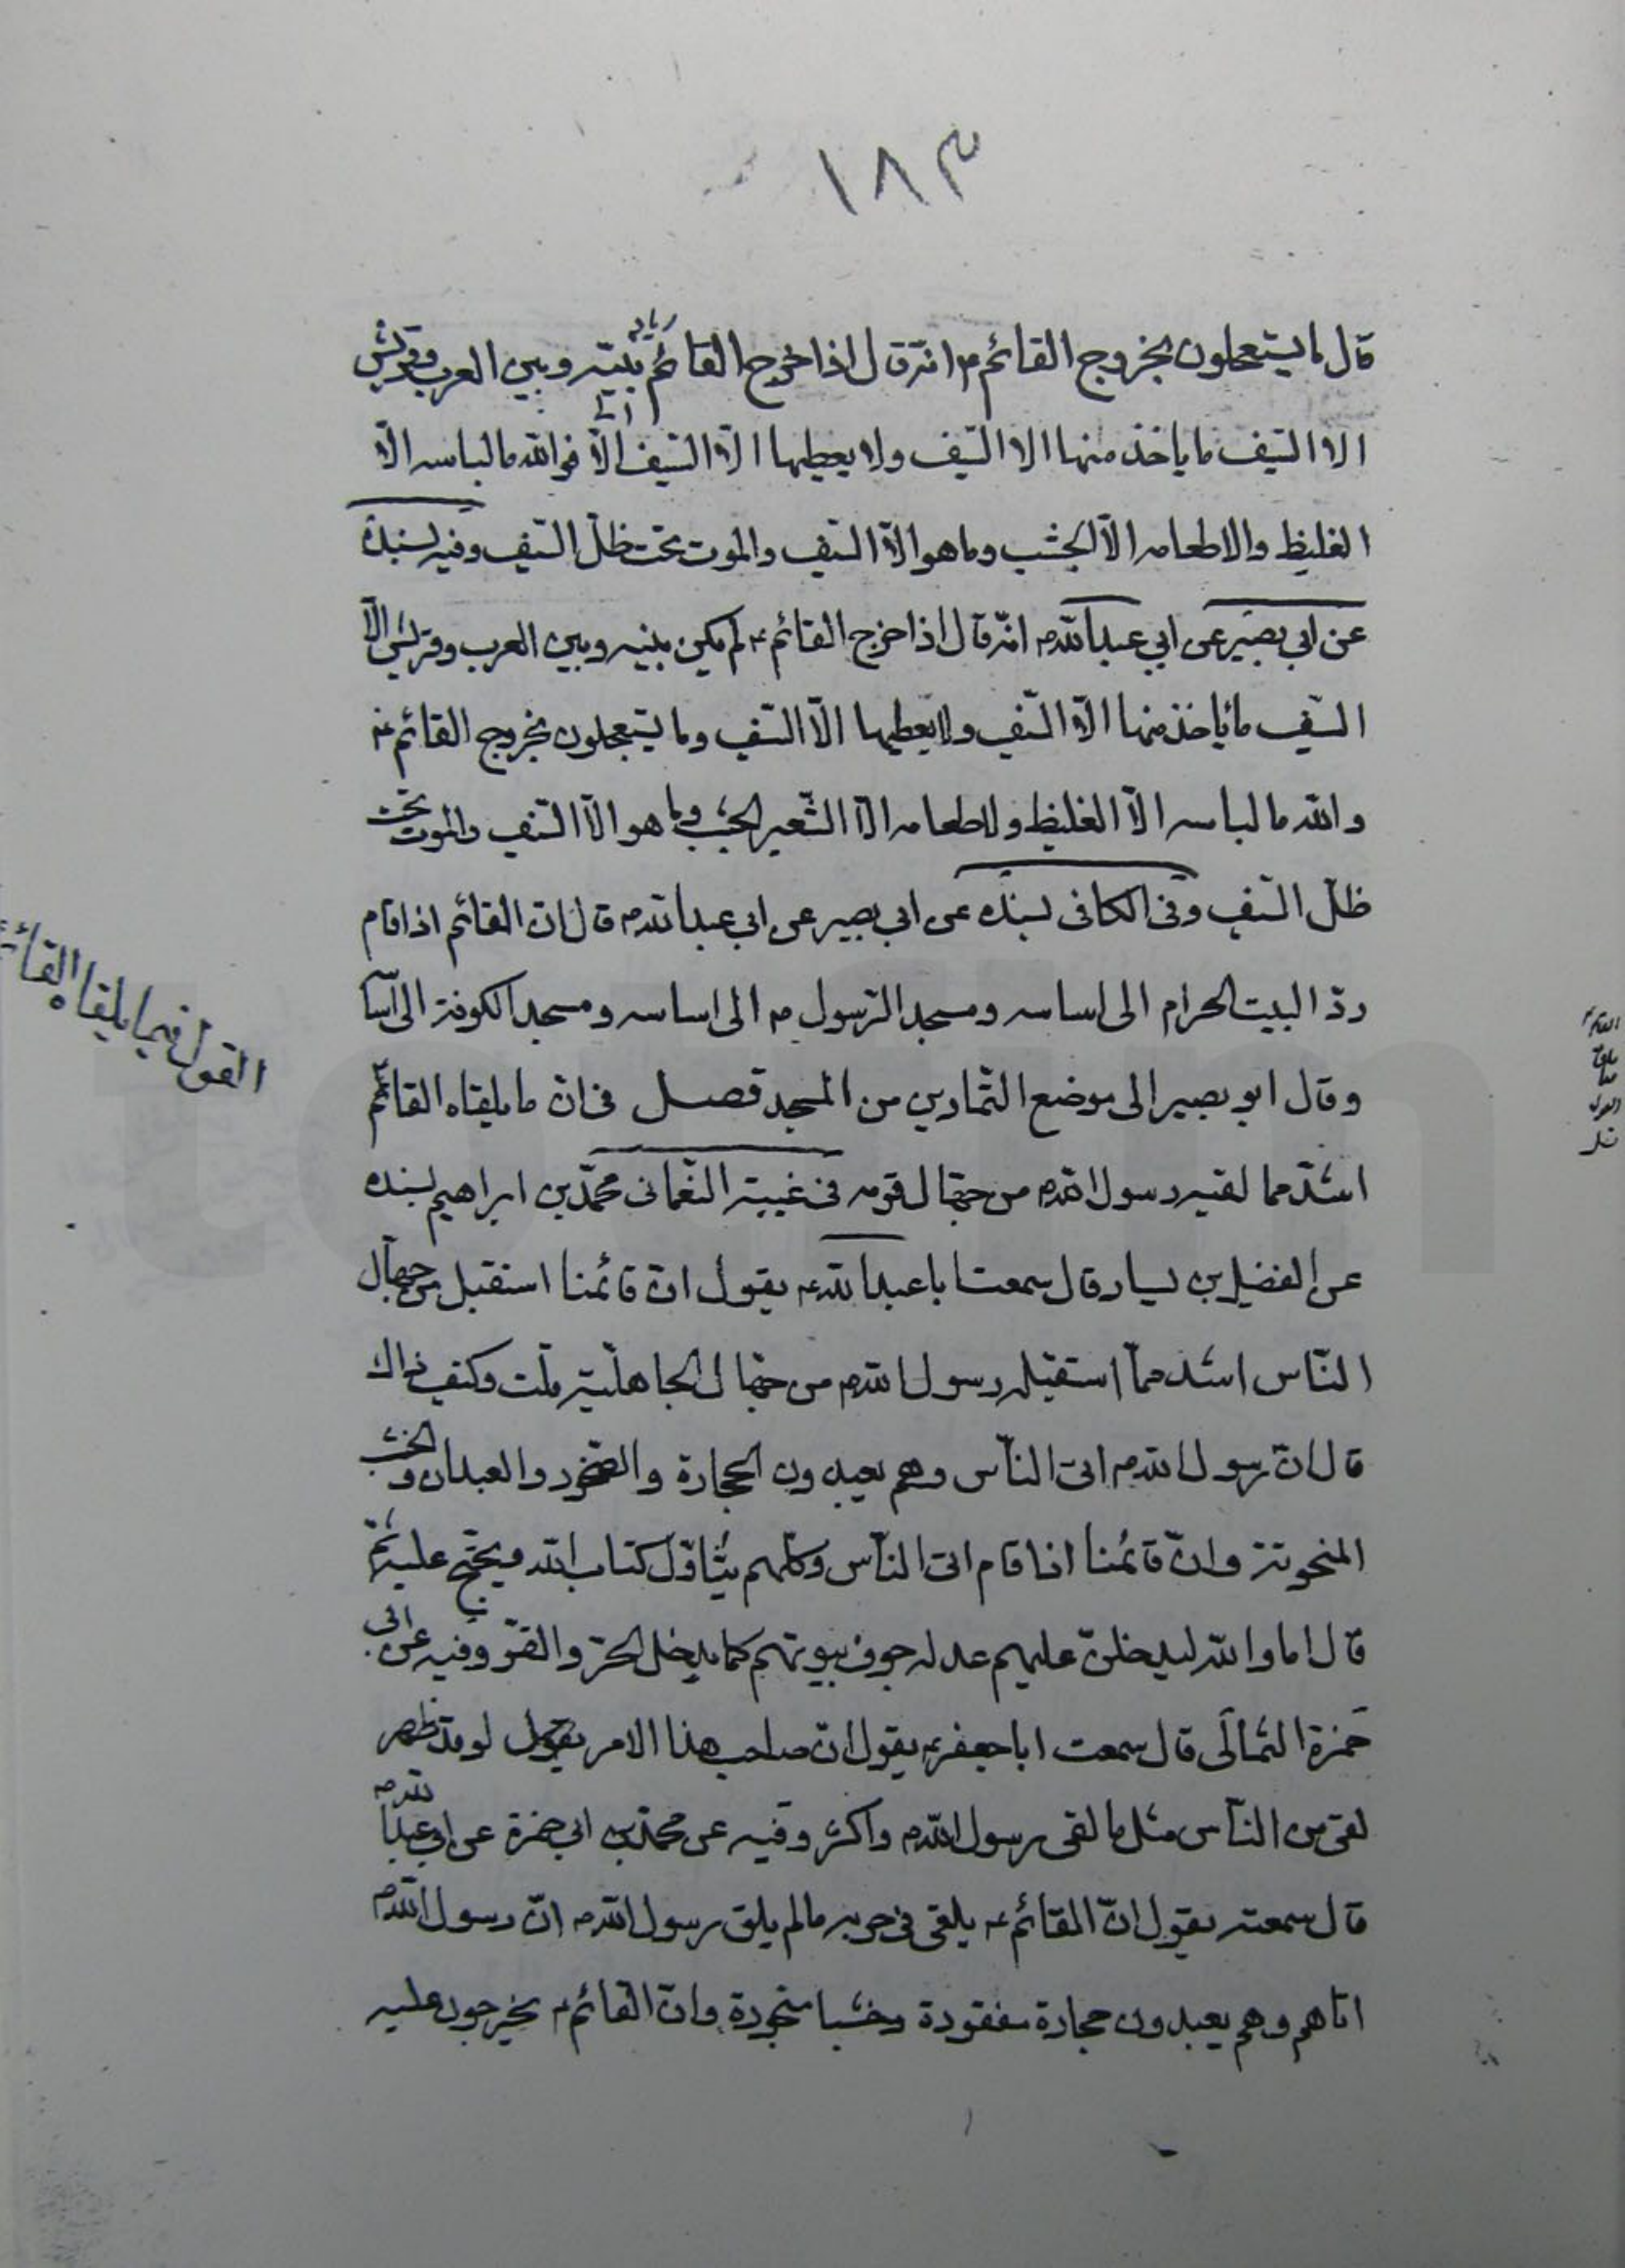 ١٨٣
قال ما يستعجلون بخروج القائم ع انه قال اذا خرج القائم بينه وبين العرب وقريش
الا السّيف ما ياخذ منها الا السّيف ولا يعطيها الّا السّيف الّا فوالله ما لباسه الّا
الغليظ والا طعامه الّا الجشب وما هو الّا السّيف والموت تحت ظلّ السّيف وفيه بسنده
عن ابي بصير عن ابي عبد الله ع انّه قال اذا خرج القائم ع لم يكن بينه وبين العرب وقريش الّا
السّيف ما ياخذ منها الّا السّيف ولا يعطيها الّا السّيف وما يستعجلون بخروج القائم ع
والله ما لباسه الّا الغليظ ولا طعامه الّا الشّعير الجشب وما هو الّا السّيف والموت تحت
ظلّ السّيف وفى الكافى بسنده عن ابي بصير عن ابي عبد الله ع قال ان القائم اذا قام
ردّ البيت الحرام الى اساسه ومسجد الرّسول ص الى اساسه ومسجد الكوفة الى اسا
وقال ابو بصير الى موضع التّمارين من المسجد فصل فى انّ ما يلقاه القائم
اشدّ مما لقيه رسول الله ص من جهّال قومه فى غيبة النّعمانى محمّد بن ابراهيم بسنده
عن الفضيل بن يسار قال سمعت ابا عبد الله ع يقول انّ قائمنا استقبل من جهّال
النّاس اشد ممّا استقبله رسول الله ص من جهّال الجاهليّة قلت وكيف ذاك
قال انّ رسول الله ص اتى النّاس وهم يعبدون الحجارة والصّخور والعيدان والخشب
المنحوتة وانّ قائمنا اذا قام اتى النّاس وكلّهم يتاوّل كتاب الله ويحتج عليه ثم
قال اما والله ليدخلنّ عليهم عدله جوف بيوتهم كما يدخل الحرّ والقرّ وفيه عن ابي
حمزة الثمالى قال سمعت ابا جعفر ع يقول انّ صاحب هذا الامر يقول لو قد ظهر
لقى من النّاس مثل ما لقى رسول الله ص واكثر وفيه عن محمّد بن ابي حمزة عن ابي عبد الله ع
قال سمعته يقول انّ القائم ع يلقى فى حربه ما لم يلق رسول الله ص انّ رسول الله ص
اتاهم وهم يعبدون حجارة منقودة وخشبا منجودة وانّ القائم ع يخرجون عليه
القول فيما يلقاه القائم